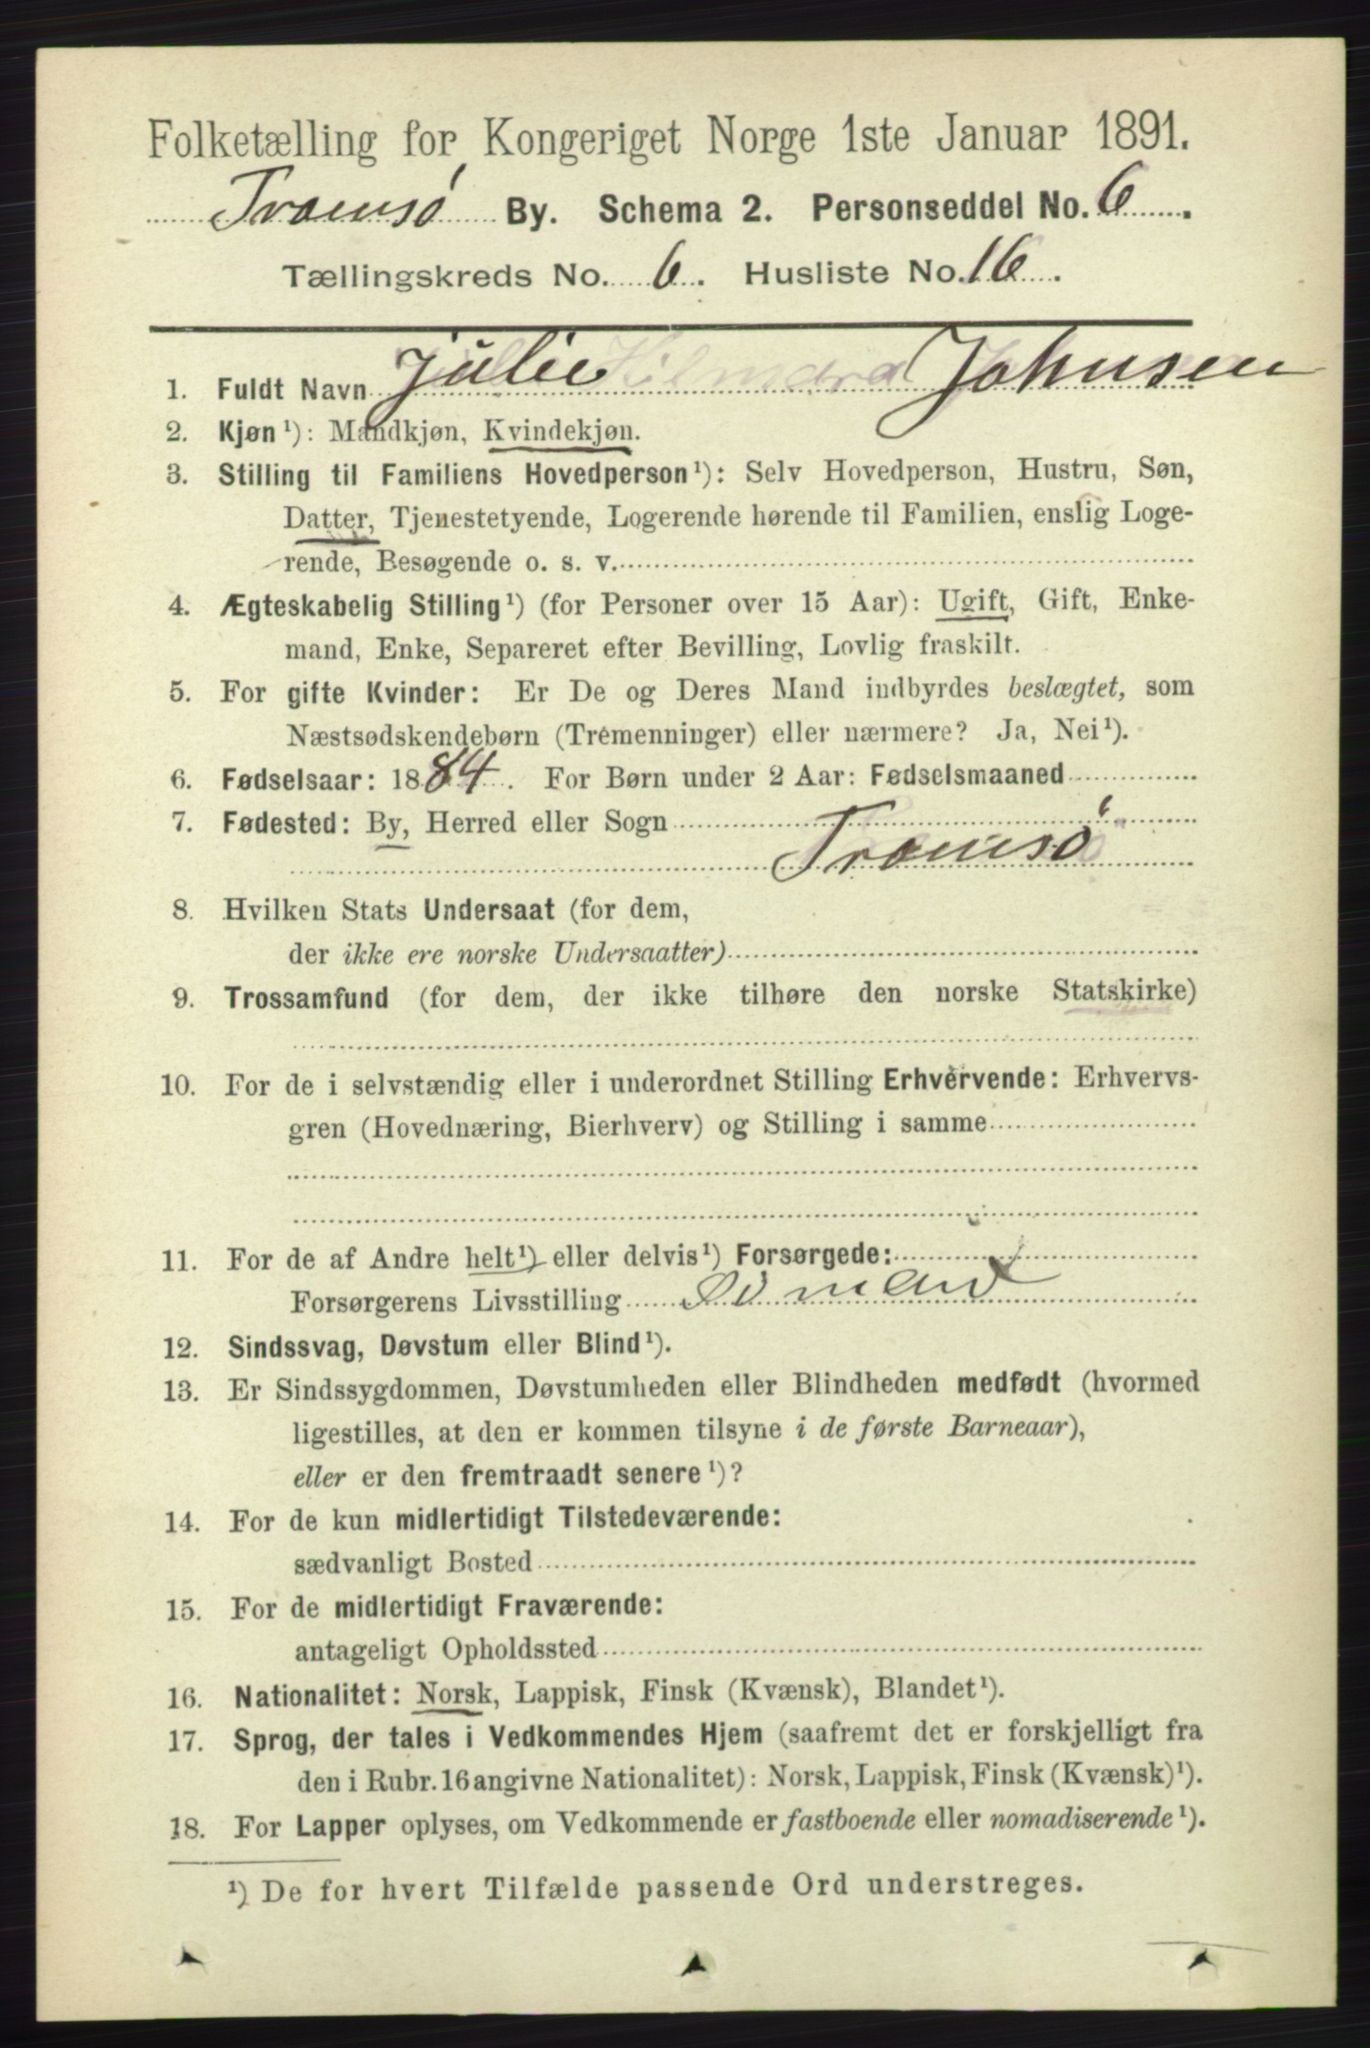 Folketælling for Kongeriget Norge 1ste Januar 1891.
Tromsö By. Schema 2. Personseddel No. 6.
Tællingskreds No. 6. Husliste No. 16.
1. Fuldt Navn Julie Johnsen
2. Kjøn¹): Mandkjøn, Kvindekjøn.
3. Stilling til Familiens Hovedperson¹): Selv Hovedperson, Hustru, Søn,
Datter, Tjenestetyende, Logerende hørende til Familien, enslig Loge-
rende, Besøgende o. s. v.
4. Ægteskabelig Stilling¹) (for Personer over 15 Aar): Ugift, Gift, Enke-
mand, Enke, Separeret efter Bevilling, Lovlig fraskilt.
5. For gifte Kvinder: Er De og Deres Mand indbyrdes beslægtet, som
Næstsødskendebørn (Tremenninger) eller nærmere? Ja, Nei¹).
6. Fødselsaar: 1884. For Børn under 2 Aar: Fødselsmaaned
7. Fødested: By, Herred eller Sogn
Tromsö
8. Hvilken Stats Undersaat (for dem,
der ikke ere norske Undersaatter)
9. Trossamfund (for dem, der ikke tilhøre den norske Statskirke)
10. For de i selvstændig eller i underordnet Stilling Erhvervende: Erhvervs-
gren (Hovednæring, Bierhverv) og Stilling i samme
11. For de af Andre helt¹) eller delvis¹) Forsørgede:
Forsørgerens Livsstilling
12. Sindssvag, Døvstum eller Blind¹).
13. Er Sindssygdommen, Døvstumheden eller Blindheden medfødt (hvormed
ligestilles, at den er kommen tilsyne i de første Barneaar),
eller er den fremtraadt senere¹)?
14. For de kun midlertidigt Tilstedeværende:
sædvanligt Bosted
15. For de midlertidigt Fraværende:
antageligt Opholdssted
16. Nationalitet: Norsk, Lappisk, Finsk (Kvænsk), Blandet¹).
17. Sprog, der tales i Vedkommendes Hjem (saafremt det er forskjelligt fra
den i Rubr. 16 angivne Nationalitet): Norsk, Lappisk, Finsk (Kvænsk)¹).
18. For Lapper oplyses, om Vedkommende er fastboende eller nomadiserende¹).
¹) De for hvert Tilfælde passende Ord understreges.